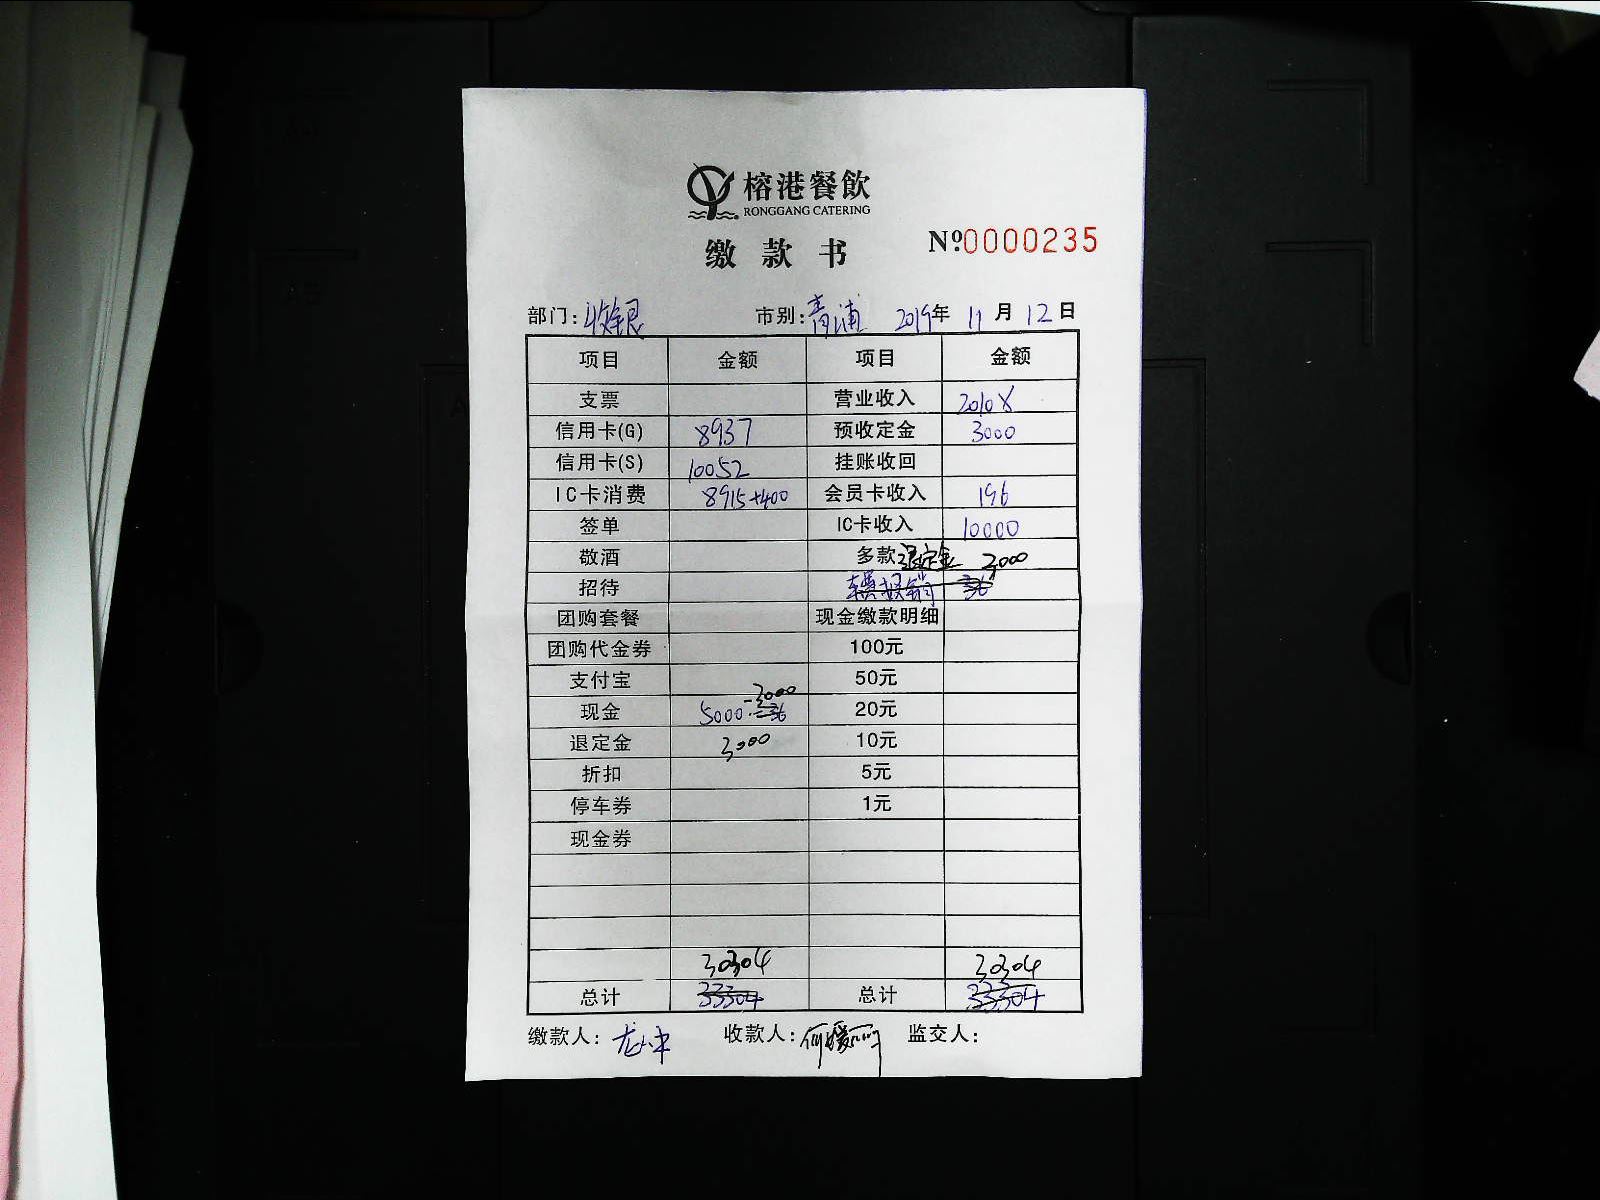 榕港餐飲
RONGGANG CATERING
缴款书 Nº0000235
部门:收银 市别:青浦 2019年11月12日
项目 金额 项目 金额
支票 营业收入 20108
信用卡(G) 8937 预收定金 3000
信用卡(S) 10052 挂账收回
IC卡消费 8915+400 会员卡收入 196
签单 IC卡收入 10000
敬酒 多款退定金 3000
招待 报销 36
团购套餐 现金缴款明细
团购代金券 100元
支付宝 50元
-3000
现金 5000-36 20元
退定金 3000 10元
折扣 5元
停车券 1元
现金券
30304 30304
总计 33304 总计 33304
缴款人: 收款人: 监交人: